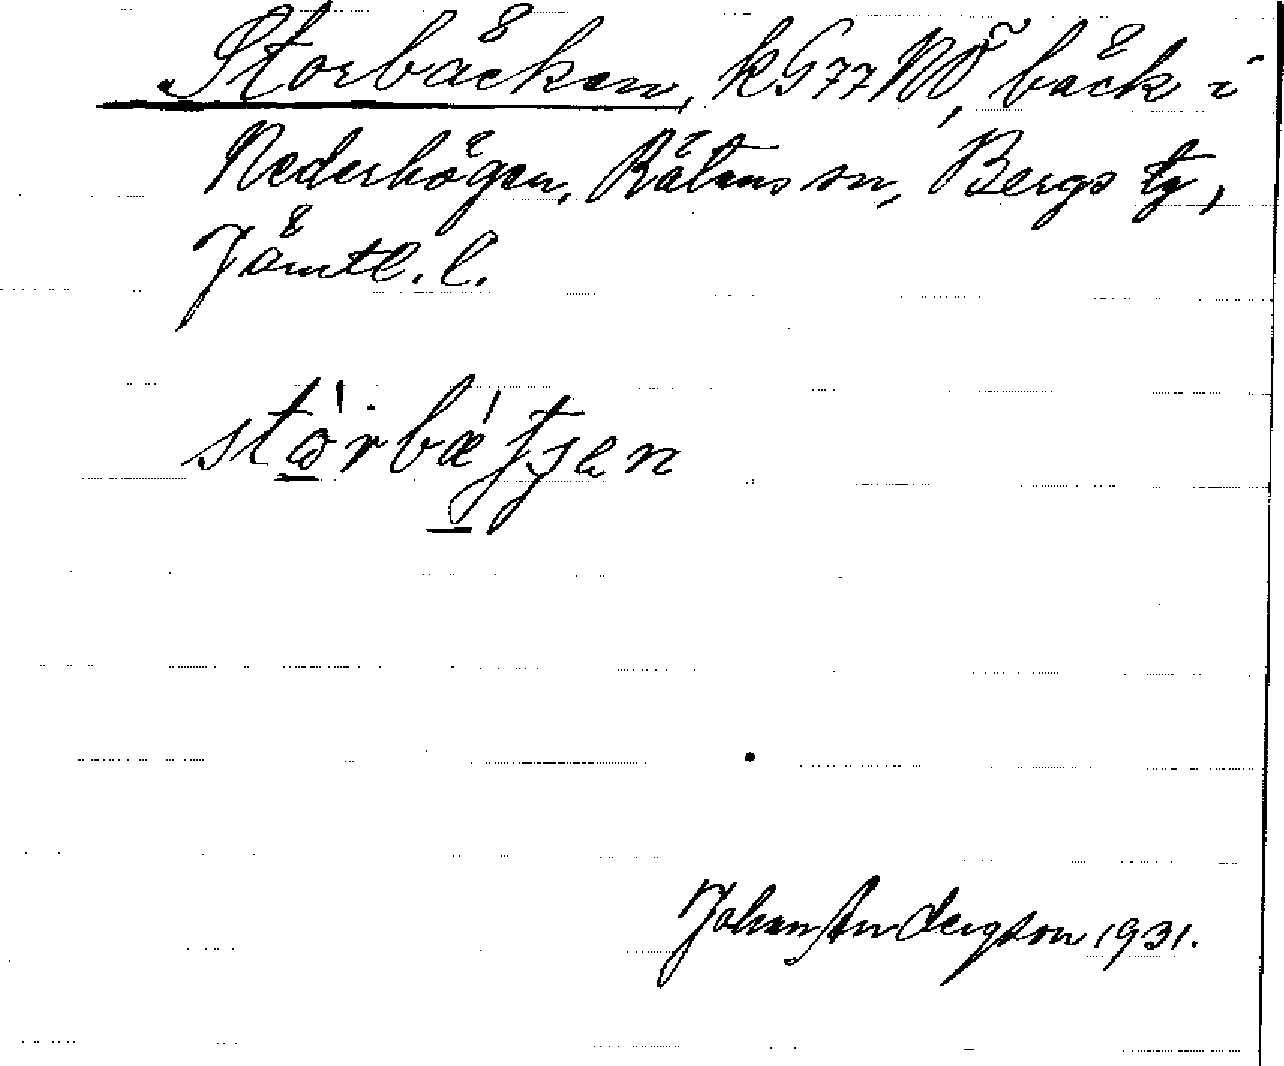 Storbäcken, kG77NV, bäck i
Nederhögen, Rätans sn, Bergs tg,
Jämtl. l.
störbætjen
Johan Andersson 1931.